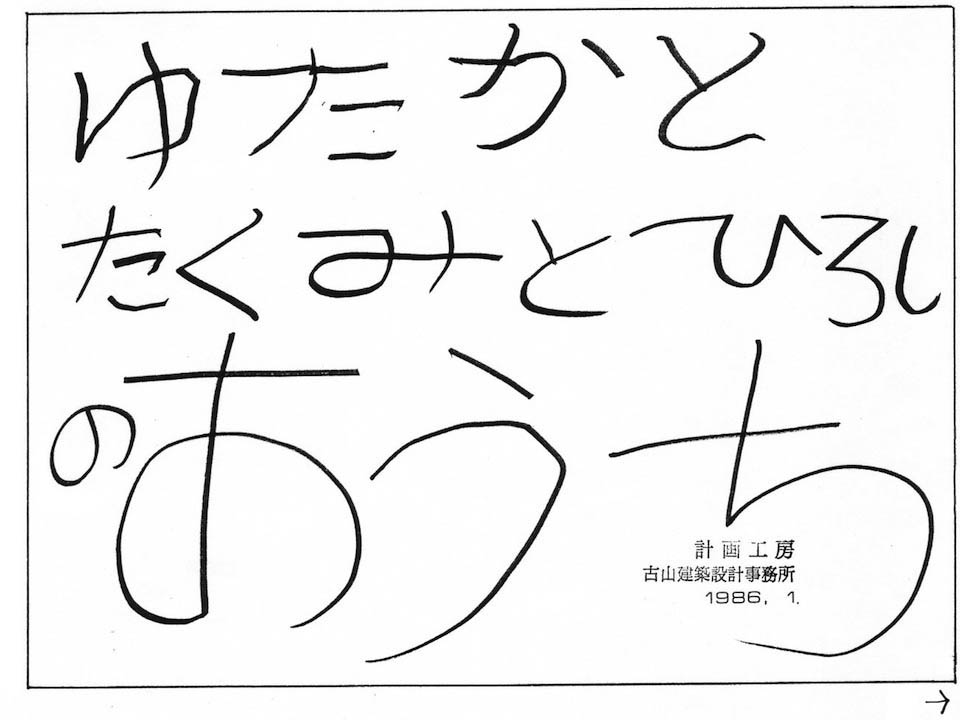 ゆたかと
たくみとひろし
のおうち
計画工房
古山建築設計事務所
1986, 1.
→